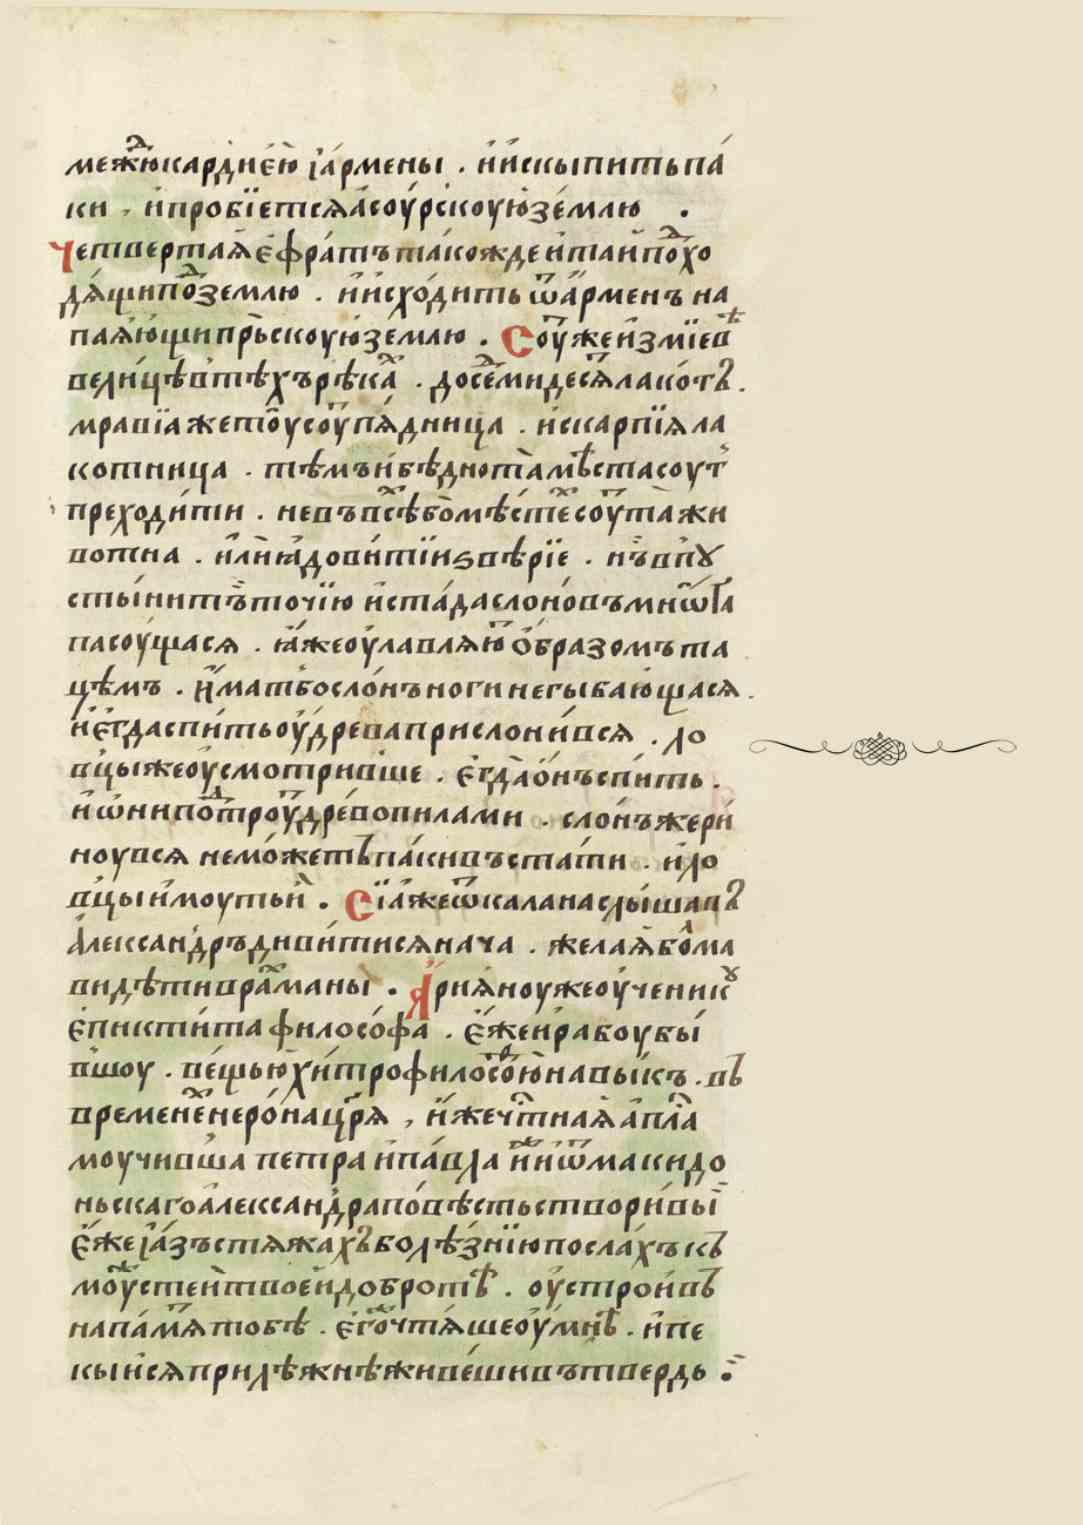 меж꙽ⷣюкардїиєю їармены . иискыпитьпа
ки , ипробїетсѧасоурскоуюземлю .
Четвертаѧефратътакождеитаипоⷣхо
дѧщипоⷣземлю . иисходитьѿарменъна
паѧющипрьскоуюземлю . Соуⷮжеизмїевѣ
велицѣвтѣхърѣкаⷯ . досеⷣмидесѧⷮлакотъ .
мравїажетоⷨусоуⷮпѧдница . искарпїѧла
котница . тѣмъибѣднотамѣстасоут
преходити . невъвсѣⷯбомѣстеⷯсоуⷮтажи
вотна . илиꙗдовитїиѕвѣрїе . нъвпꙋ
стынитъⷯточїю истадаслоновъмнѡга
пасоущасѧ . ꙗжеоулавлѧюⷮобразомъта
цѣмъ . иматбослонъногинегыбающасѧ .
иегдаспитьоудревaприслонивсѧ . ло
вцыжеоусмотривше . егдаонъспить .
иѡнипоⷣтроуⷮдревопилами . слонъжери
ноувсѧ неможетьпакивъстати . ило
вцыимоутьи . Сїѧжеѿкаланаслышавъ
Александръдивитисѧнача . желаѧбома
видѣтивраⷯманы . Арїѧноужеоученикꙋ
епиктитафилософа . ежеирабоубы
вшоу . вещьюхитрофилосоⷴюнавыкъ . въ
временеⷯнеронацрѧ , ижечⷭтнаѧапⷭла
моучивша петра ипавла ииѿмакидо
ньскагоалександраповѣстьстворивыи
ежеїазъстѧжахъболѣзнїюпослахъкъ
моуⷤстеитвоеидобротѣ . оустроивъ
напамѧⷮтобѣ . егоⷤчтѧшеоумнѣ . ипе
кыисѧприлѣжнѣживешивътвердь .